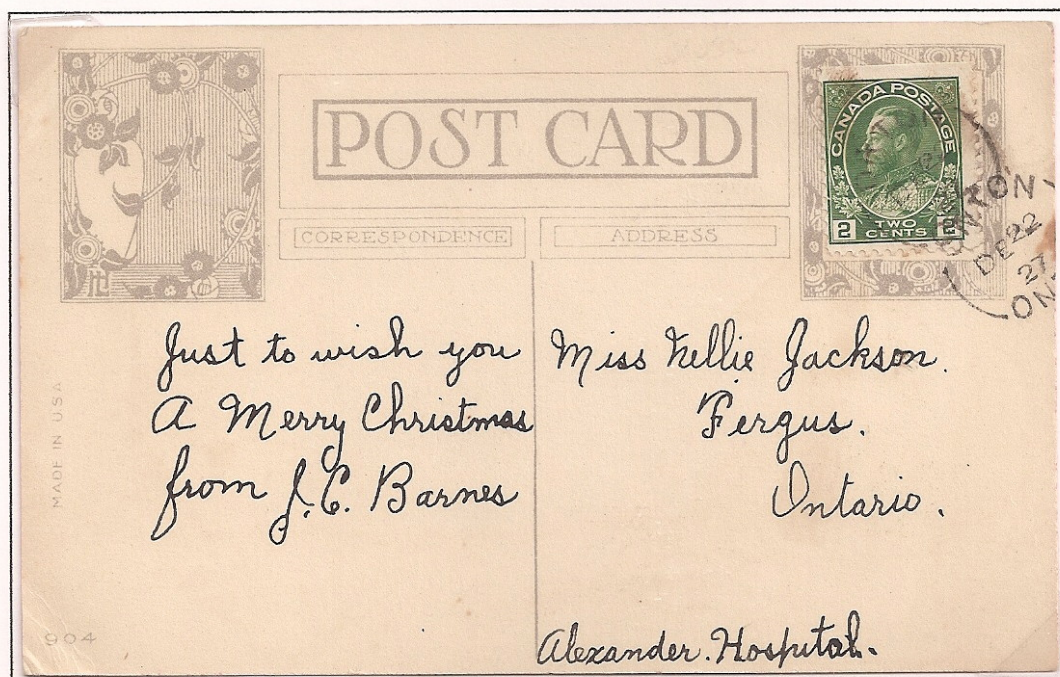 POST CARD
CORRESPONDENCE
ADDRESS
CANADA POSTAGE
2 TWO CENTS 2
DE 22
27
ON
Just to wish you
A Merry Christmas
from J.C. Barnes
Miss Nellie Jackson.
Fergus.
Ontario.
Alexander. Hospital.
MADE IN USA
904